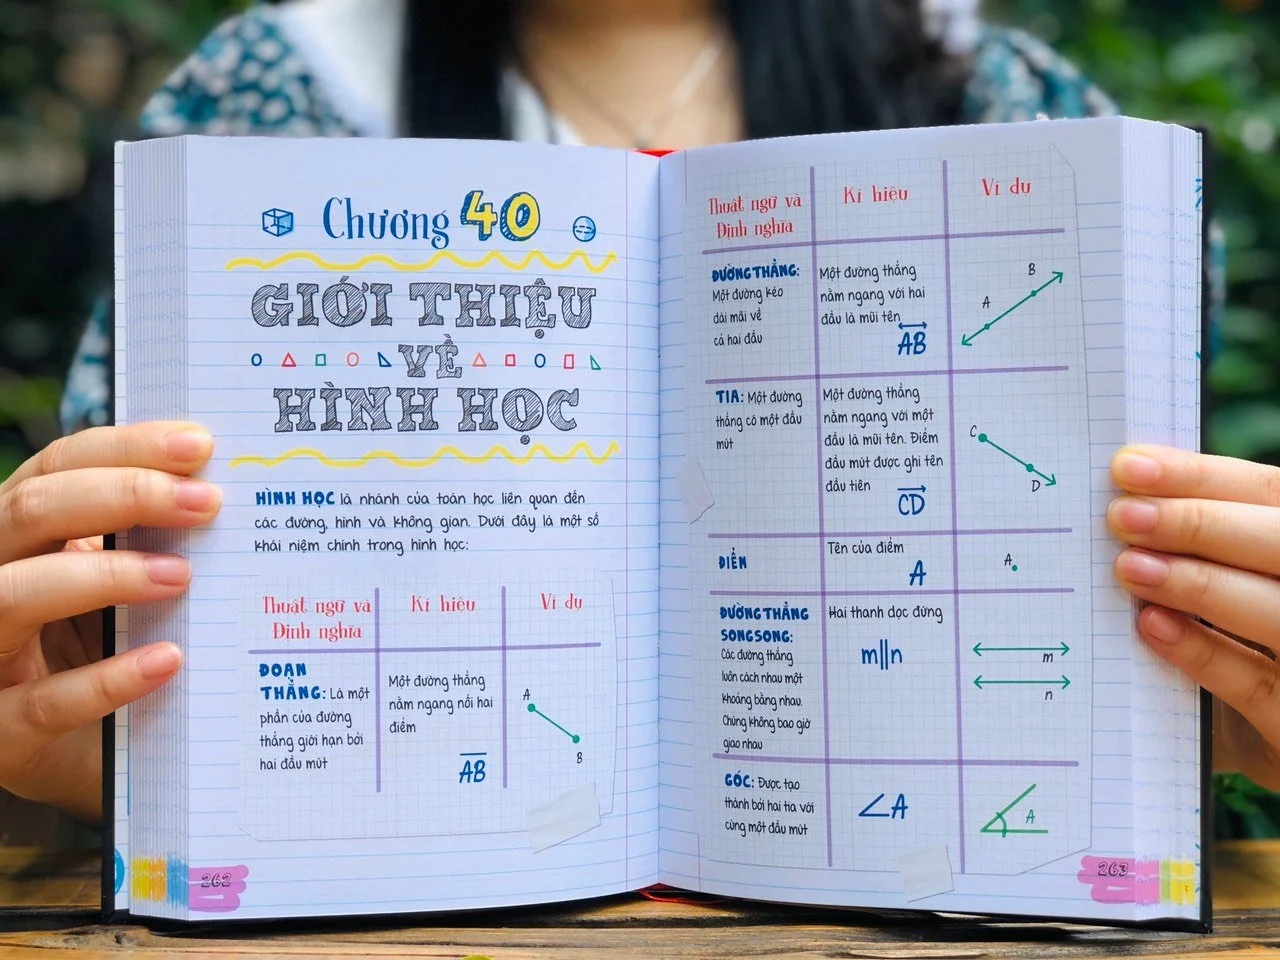 Chương 40
GIỚI THIỆU
VỀ
HÌNH HỌC
HÌNH HỌC là nhánh của toán học liên quan đến
các đường, hình và không gian. Dưới đây là một số
khái niệm chính trong hình học:
Thuật ngữ và
Định nghĩa
Kí hiệu
Ví dụ
ĐOẠN
THẲNG: Là một
phần của đường
thẳng giới hạn bởi
hai đầu mút
Một đường thẳng
nằm ngang nối hai
điểm
AB
A
B
262
Thuật ngữ và
Định nghĩa
Kí hiệu
Ví dụ
ĐƯỜNG THẲNG:
Một đường kéo
dài mãi về
cả hai đầu
Một đường thẳng
nằm ngang với hai
đầu là mũi tên
AB
B
A
TIA: Một đường
thẳng có một đầu
mút
Một đường thẳng
nằm ngang với một
đầu là mũi tên. Điểm
đầu mút được ghi tên
đầu tiên
CD
C
D
ĐIỂM
Tên của điểm
A
A
ĐƯỜNG THẲNG
SONG SONG:
Các đường thẳng
luôn cách nhau một
khoảng bằng nhau.
Chúng không bao giờ
giao nhau
Hai thanh dọc đứng
m||n
m
n
GÓC: Được tạo
thành bởi hai tia với
cùng một đầu mút
∠A
A
263